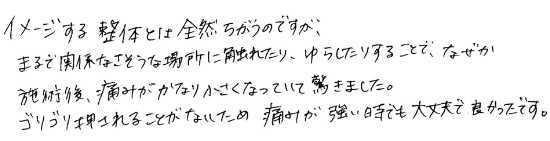 イメージする 整体とは全然ちがうのですが、
まるで関係なさそうな場所に触れたり、ゆらしたりすることで、なぜか
施術後、痛みがかなり小さくなっていて驚きました。
ゴリゴリ押されることがないため 痛みが 強い時でも大丈夫で良かったです。